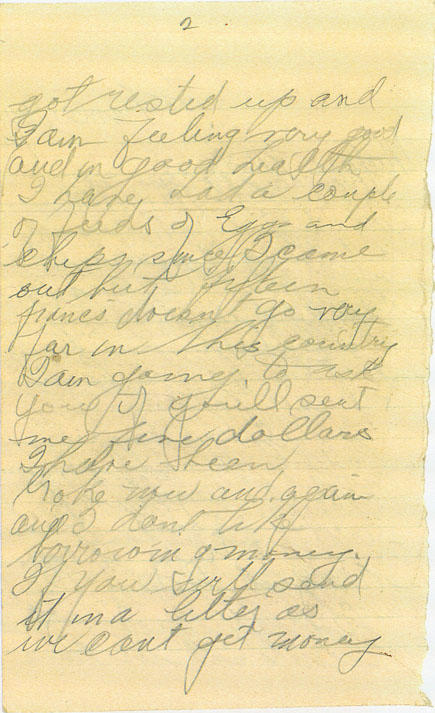 2.
got rested up and
I am feeling very good
and in good health
I have had a couple
of feeds of Eggs and
chips since I came
out but fifteen
francs doesnt go very
far in this country
I am going to ask
you if you'll sent
me five dollars
I have been
broke now and again
and I dont like
borrowing money.
If you will send
it in a letter as
we cant get money